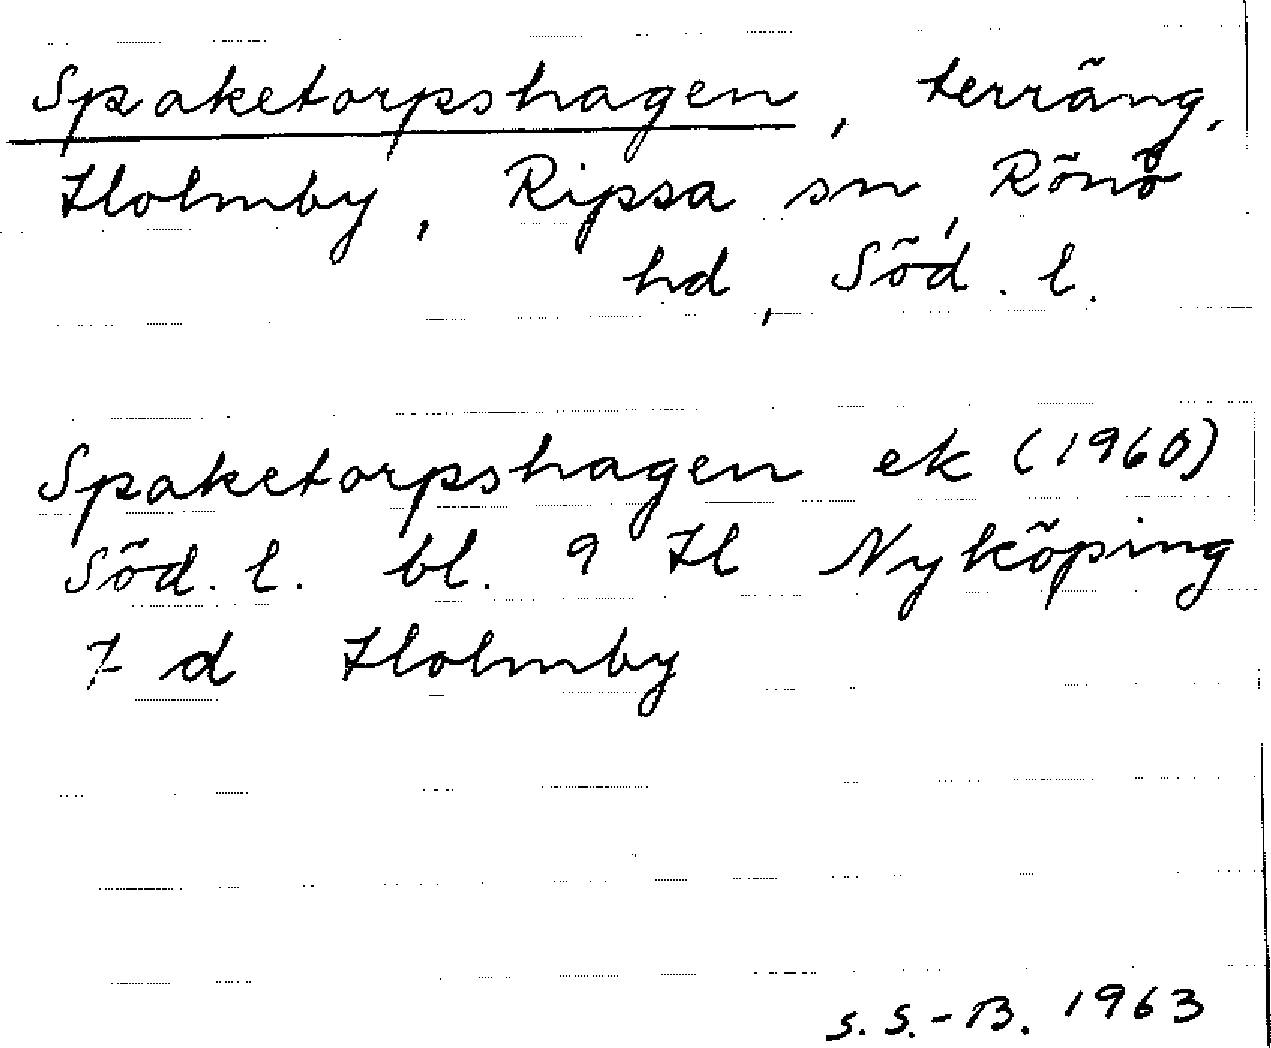 Spaketorpshagen, terräng,
Holmby, Ripsa sn, Rönö
hd, Söd. l.
Spaketorpshagen ek (1960)
Söd. l. bl. 9 H Nyköping
7 d Holmby
S. S.-B. 1963